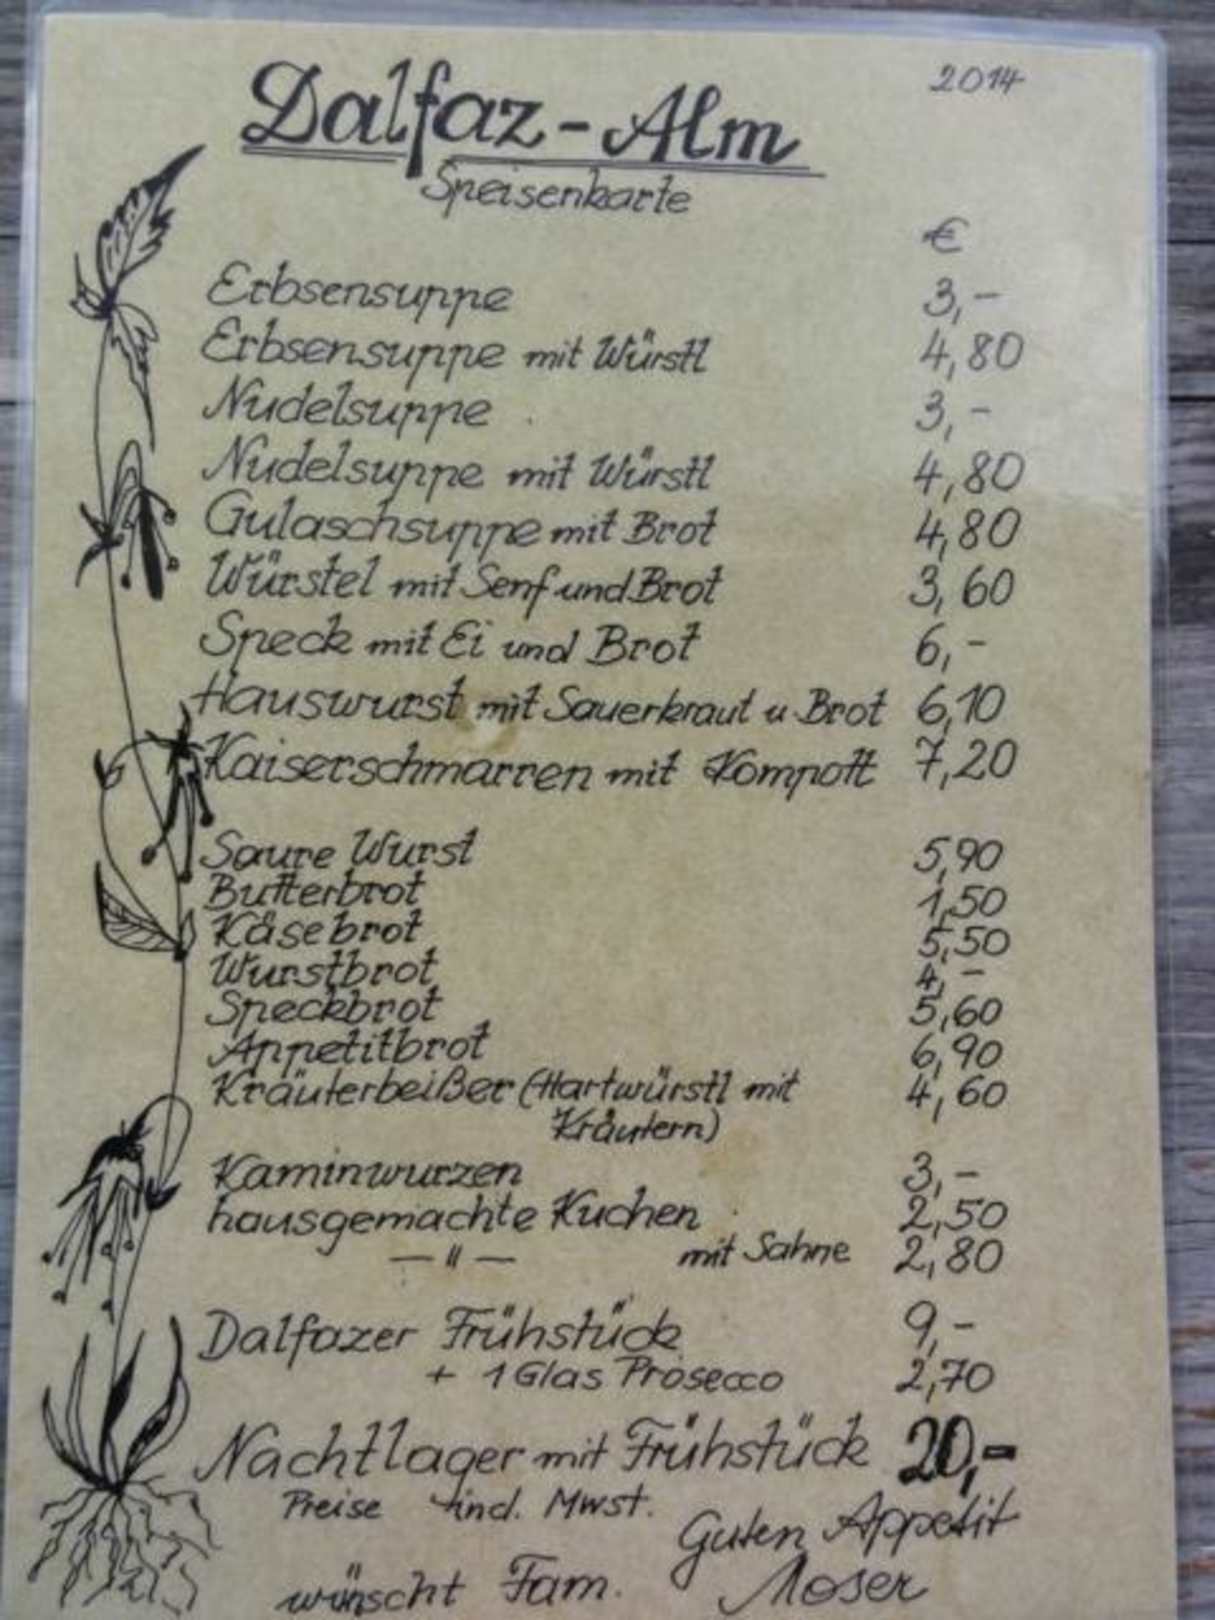 2014
Dalfaz-Alm
Speisenkarte
€
Erbsensuppe 3,-
Erbsensuppe mit Würstl 4,80
Nudelsuppe 3,-
Nudelsuppe mit Würstl 4,80
Gulaschsuppe mit Brot 4,80
Würstel mit Senf und Brot 3,60
Speck mit Ei und Brot 6,-
Hauswurst mit Sauerkraut u Brot 6,10
Kaiserschmarren mit Kompott 7,20
Saure Wurst 5,90
Butterbrot 1,50
Käsebrot 5,50
Wurstbrot 4,-
Speckbrot 5,60
Appetitbrot 6,90
Kräuterbeißer (Hartwürstl mit 4,60
Kräutern)
Kaminwurzen 3,-
hausgemachte Kuchen 2,50
— " — mit Sahne 2,80
Dalfazer Frühstück 9,-
+ 1 Glas Prosecco 2,70
Nachtlager mit Frühstück 20,-
Preise incl. Mwst.
Guten Appetit
wünscht Fam. Moser